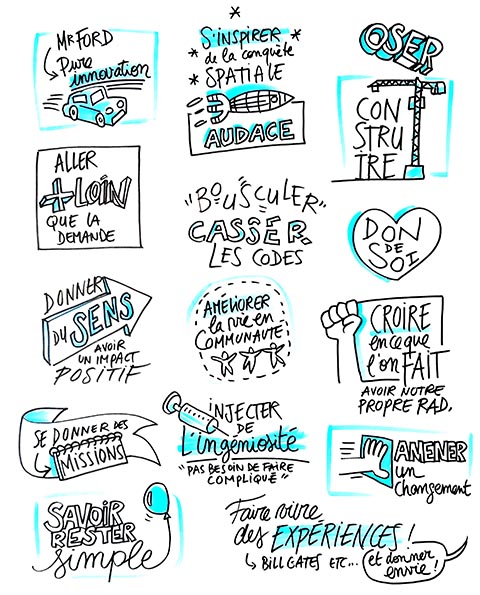 Mr FORD
Pure
innovation
S'INSPIRER
de la conquête
SPATIALE
AUDACE
OSER
CON
STRU
IRE
ALLER
+ LOIN
QUE LA
DEMANDE
"BOUSCULER"
CASSER
LES CODES
DON
DE
SOI
DONNER
DU SENS
AVOIR
UN IMPACT
POSITIF
AMELIORER
la vie en
COMMUNAUTÉ
CROIRE
en ce que
l'on FAIT
AVOIR NOTRE
PROPRE RAD.
SE DONNER DES
MISSIONS
INJECTER
DE
L'ingéniosité
"PAS BESOIN DE FAIRE
COMPLIQUÉ"
AMENER
un
changement
SAVOIR
RESTER
simple
Faire vivre
des EXPÉRIENCES !
BILL GATES ETC...
et donner
envie !